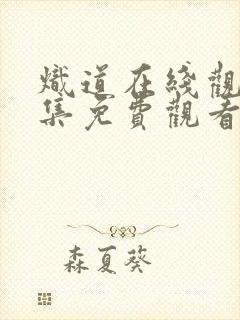 熾道在綫觀
集免費觀看
森夏葵